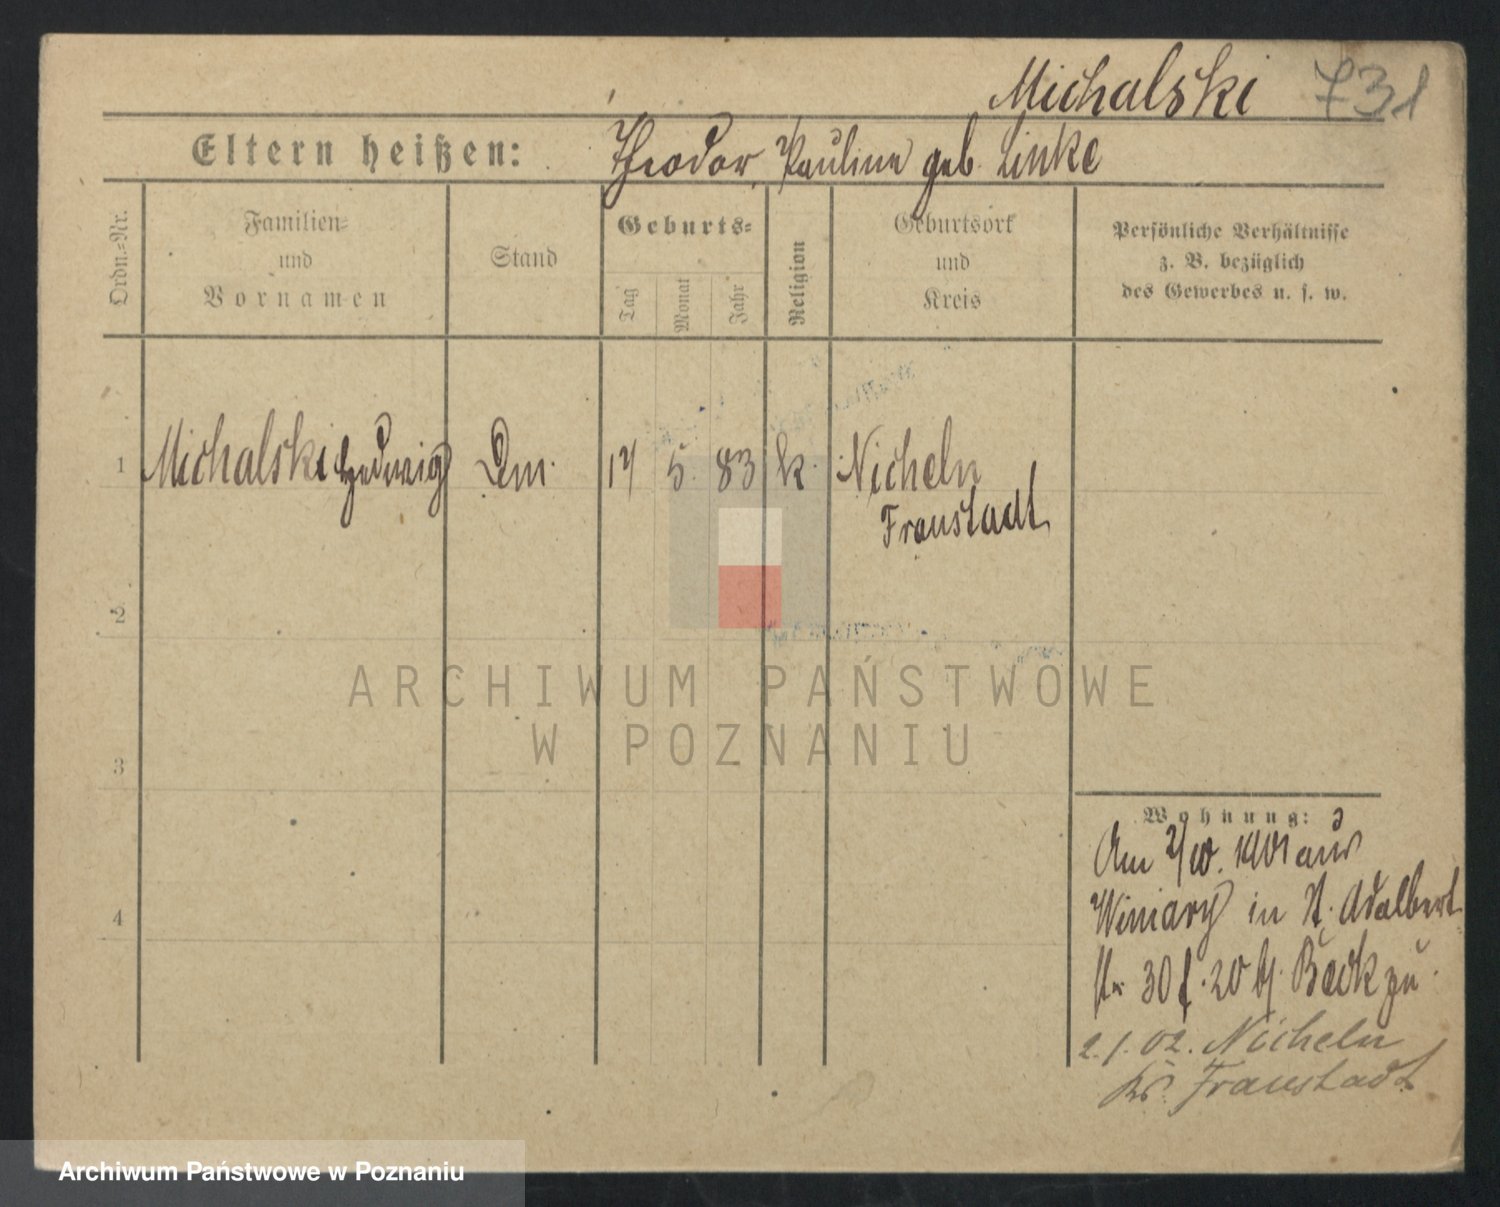 Michalski 731
Eltern heißen: Theodor, Pauline geb. Linke
Ordn.=Nr.
Familien=
und
Vornamen
Stand
Geburts=
Tag
Monat
Jahr
Religion
Geburtsort
und
Kreis
Persönliche Verhältnisse
z. B. bezüglich
des Gewerbes u. s. w.
1 Michalski Hedwig Dm. 17 5. 83 k. Nicheln
Fraustadt
2
3
4
Wohnung:
Am 2/10. 1901 aus
Winiary in St. Adalbert
str 30 20 b/ Back zu.
2.1.02. Nicheln
Kr. Fraustadt
ARCHIWUM PAŃSTWOWE
W POZNANIU
Archiwum Państwowe w Poznaniu